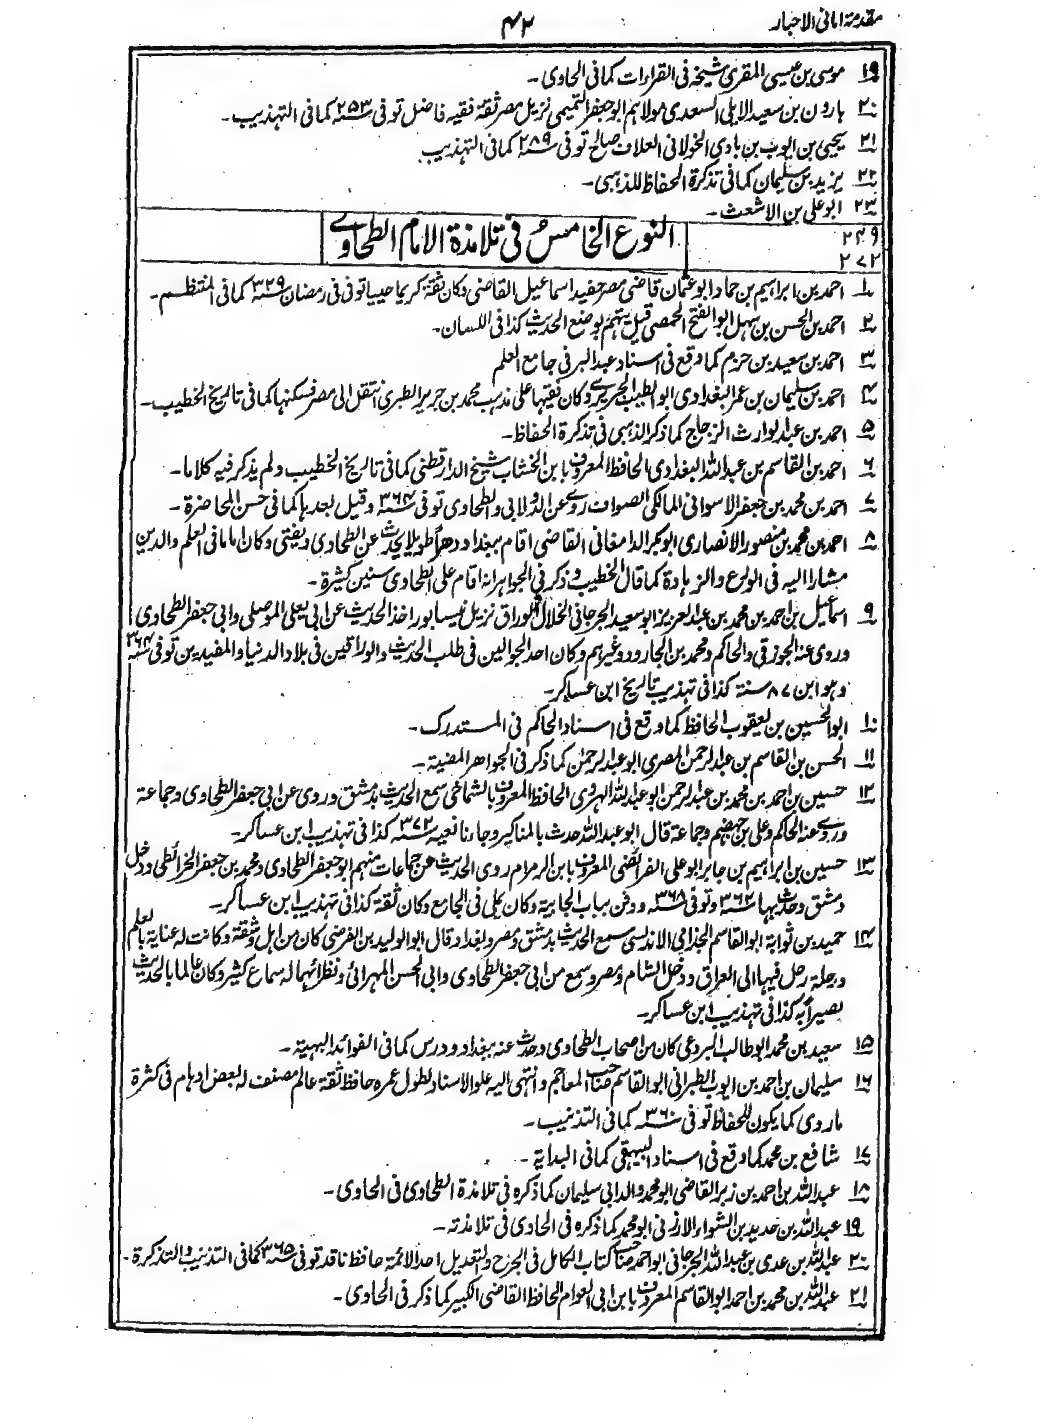 مقدمة امانی الاحبار
۴۲
۱۹ موسی بن عیسی المقری شیخہ فی القراءات کما فی الحاوی۔
۲۰ ہارون بن سعید الایلی السعدی مولاہم ابو جعفر التمیمی نزیل مصر ثقة فقیہ فاضل توفی ۲۵۳ سنہ کما فی التہذیب۔
۲۱ یحیی بن ایوب بن بادی الخولانی العلاف صالح توفی ۲۸۹ سنہ کما فی التہذیب
۲۲ یزید بن سلیمان کما فی تذکرة الحفاظ للذہبی۔
۲۳ ابو علی بن الاشعث۔
۲۴۹
۲۷۲
النوع الخامس فی تلامذة الامام الطحاوی
۱ احمد بن ابراہیم بن حماد ابو عثمان قاضی مصر حفید اسماعیل القاضی وکان ثقة کریما حییا توفی فی رمضان ۳۲۹ سنہ کما فی المنتظم۔
۲ احمد بن الحسن بن سہل ابو الفتح الحمصی قیل یتہم بوضع الحدیث کذا فی اللسان۔
۳ احمد بن سعید بن حزم کما وقع فی اسناد عبد البر فی جامع العلم
۴ احمد بن سلیمان بن عمر البغدادی ابو الطیب الجریری وکان فقیہا علی مذہب محمد بن جریر الطبری انتقل الی مصر فسکنہا کما فی تاریخ الخطیب۔
۵ احمد بن عبد الوارث الزجاج کما ذکر الذہبی فی تذکرة الحفاظ۔
۶ احمد بن القاسم بن عبد اللہ البغدادی الحافظ المعروف بابن الخشاب شیخ الدارقطنی کما فی تاریخ الخطیب ولم یذکر فیہ کلاما۔
۷ احمد بن محمد بن جعفر الاسوانی المالکی الصواف روی عن الدولابی والطحاوی توفی ۳۶۴ سنہ وقیل بعدہا کما فی حسن المحاضرة۔
۸ احمد بن محمد بن منصور الانصاری ابو بکر الدامغانی القاضی اقام ببغداد دہرا طویلا یحدث عن الطحاوی ویفتی وکان اماما فی العلم والدین
مشارا الیہ فی الورع والزہادة کما قال الخطیب وذکر فی الجواہر انہ اقام علی الطحاوی سنین کثیرة۔
۹ اسماعیل بن احمد بن محمد بن عبد العزیز ابو سعید الجرجانی الخلال الوراق نزیل نیسابور اخذ الحدیث عن ابی یعلی الموصلی وابی جعفر الطحاوی
وروی عنہ الجوزقی والحاکم ومحمد بن الجارود وغیرہم وکان احد الجوالین فی طلب الحدیث والوراقین فی بلاد الدنیا والمفیدین توفی ۳۶۴ سنہ
وہو ابن ۸۷ سنة کذا فی تہذیب تاریخ ابن عساکر۔
۱۰ ابو الحسین بن یعقوب الحافظ کما وقع فی اسناد الحاکم فی المستدرک۔
۱۱ الحسن بن القاسم بن عبد الرحمن المصری ابو عبد الرحمن کما ذکر فی الجواہر المضیة۔
۱۲ حسین بن احمد بن محمد بن عبد الرحمن ابو عبد اللہ الہروی الحافظ المعروف بالشماخی سمع الحدیث بدمشق وروی عن ابی جعفر الطحاوی وجماعة
وروی عنہ الحاکم وعلی بن جہضم وجماعة قال ابو عبد اللہ حدث بالمناکیر وجاءنا نعیہ ۳۷۲ سنہ کذا فی تہذیب ابن عساکر۔
۱۳ حسین بن ابراہیم بن جابر ابو علی الفرائضی المعروف بابن ابی الزمزام روی الحدیث عن جماعات منہم ابو جعفر الطحاوی ومحمد بن جعفر الخرائطی ودخل
دمشق وحدث بہا ۳۶۲ سنہ وتوفی ۳۶۸ سنہ ودفن بباب الجابیة وکان یملی فی الجامع وکان ثقة کذا فی تہذیب ابن عساکر۔
۱۴ حمید بن ثوابة ابو القاسم الجذامی الاندلسی سمع الحدیث بدمشق ومصر وبغداد وقال ابو الولید بن الفرضی کان من اہل وشقة وکانت لہ عنایة بالعلم
ورحلة رحل فیہا الی العراق ودخل الشام ومصر وسمع من ابی جعفر الطحاوی وابی الحسن المہرانی ونظرائہما لہ سماع کثیر وکان عالما بالحدیث
بصیرا بہ کذا فی تہذیب ابن عساکر۔
۱۵ سعید بن محمد ابو طالب البردعی کان من اصحاب الطحاوی وحدث عنہ ببغداد ودرس کما فی الفوائد البہیة۔
۱۶ سلیمان بن احمد بن ایوب الطبرانی ابو القاسم صاحب المعاجم وانتہی الیہ علو الاسناد لطول عمرہ حافظ ثقة عالم مصنف لہ بعض اوہام فی کثرة
ما روی کما یکون للحفاظ توفی ۳۶۰ سنہ کما فی التذنیب۔
۱۷ شافع بن محمد کما وقع فی اسناد البیہقی کما فی البدایة۔
۱۸ عبد اللہ بن احمد بن زبر القاضی ابو محمد والد ابی سلیمان کما ذکرہ فی تلامذة الطحاوی فی الحاوی۔
۱۹ عبد اللہ بن حدید بن الشواء الازدی ابو محمد کما ذکرہ فی الحاوی فی تلامذتہ۔
۲۰ عبد اللہ بن عدی بن عبد اللہ الجرجانی ابو احمد صاحب کتاب الکامل فی الجرح والتعدیل احد الائمة حافظ ناقد توفی ۳۶۵ سنہ کما فی التذنیب والتذکرة۔
۲۱ عبد اللہ بن محمد بن احمد ابو القاسم المعروف بابن ابی العوام الحافظ القاضی الکبیر کما ذکر فی الحاوی۔